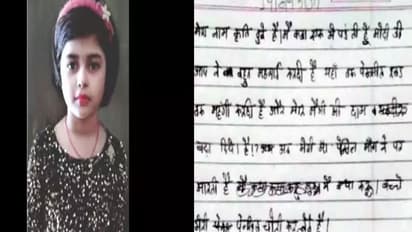 मेरा नाम कृति दुबे है। मैं कक्षा एक में पढ़ती हूँ मोदी जी
आप ने बहुत महंगाई करदी है यहाँ तक पेन्सील रबड़
तक महंगी करदी है और मेरी मैगी की दाम भी
बढ़ा दिये है। अब मेरी माँ पेंसिल माँगने पर
मारती है मैं क्या करू। बच्चे
मेरी पेन्सिल चोरी कर लेते है।